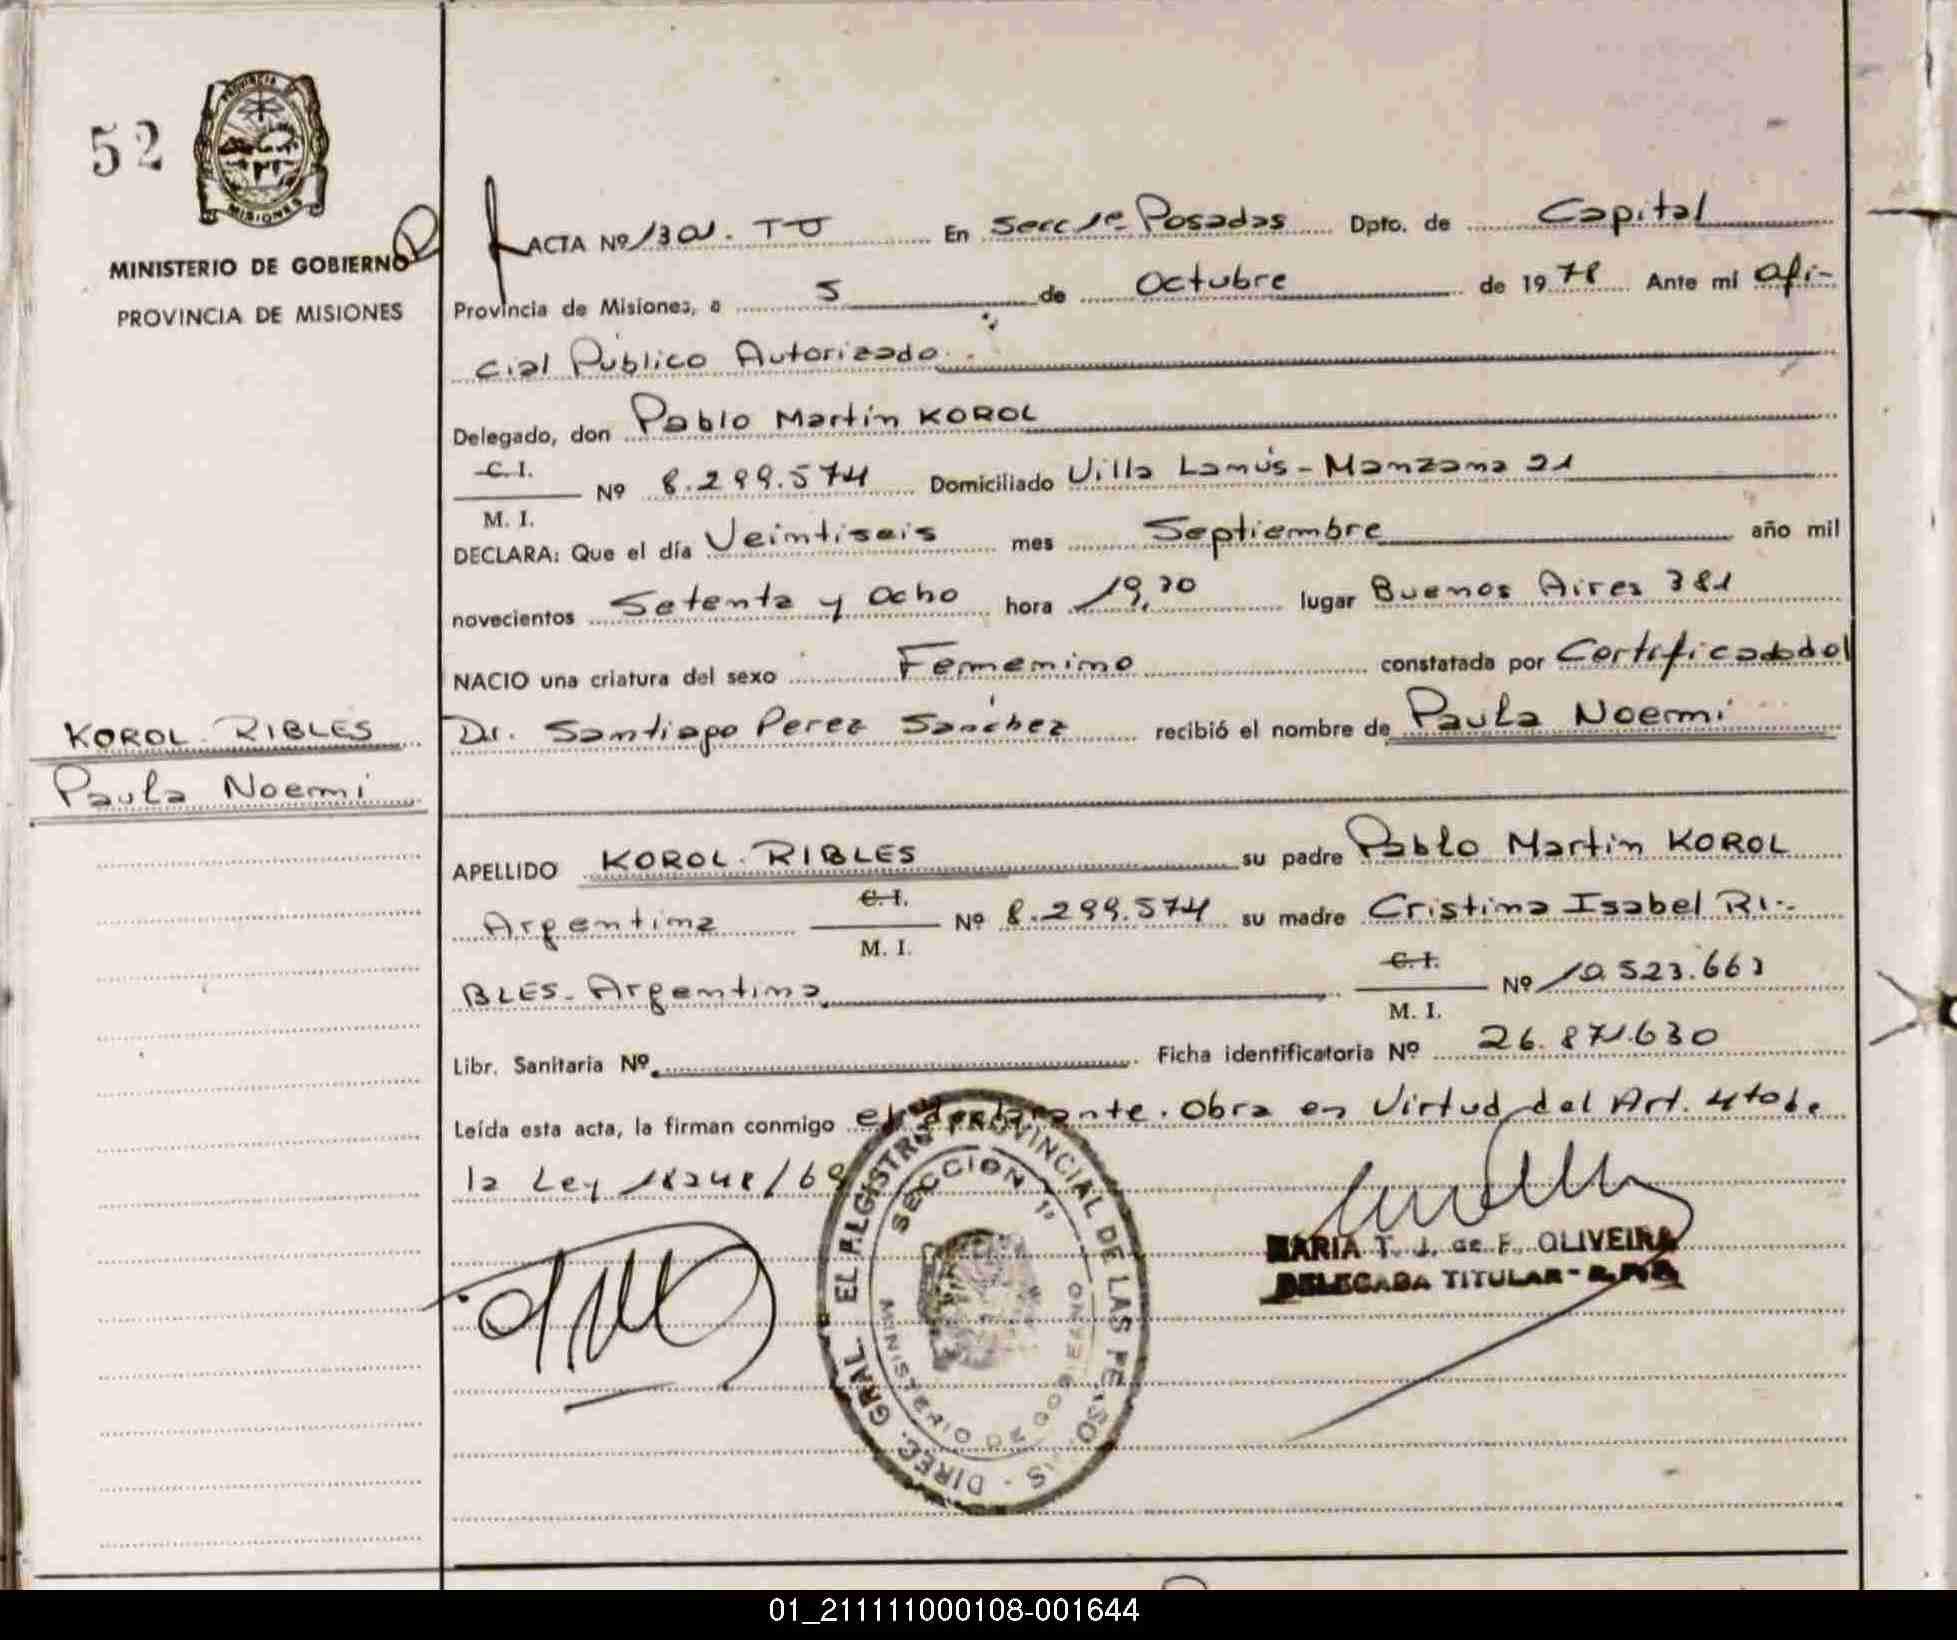 52
PROVINCIA DE
MISIONES
MINISTERIO DE GOBIERNO
PROVINCIA DE MISIONES
KOROL RIBLES
Paula Noemi
ACTA Nº 1301. TU En Secc 1ª Posadas Dpto. de Capital
Provincia de Misiones, a 5 de Octubre de 1978 Ante mi Ofi-
cial Público Autorizado
Delegado, don Pablo Martín KOROL
C. I.
Nº 8.299.574 Domiciliado Villa Lanús - Manzana 21
M. I.
DECLARA: Que el día Veintiseis mes Septiembre año mil
novecientos Setenta y Ocho hora 19,30 lugar Buenos Aires 381
NACIO una criatura del sexo Femenino constatada por Certificado del
Dr. Santiago Perez Sanchez recibió el nombre de Paula Noemi
APELLIDO KOROL RIBLES su padre Pablo Martín KOROL
Argentina C. I. Nº 8.299.574 su madre Cristina Isabel RI-
M. I.
BLES - Argentina C. I. Nº 10.523.663
M. I.
Libr. Sanitaria Nº Ficha identificatoria Nº 26.871.630
Leída esta acta, la firman conmigo el declarante. Obra en Virtud del Art. 4to de
la Ley 18248/69
DIREC. GRAL. DEL REGISTRO PROVINCIAL DE LAS PERSONAS
SECCION 1ª
MINISTERIO DE GOBIERNO
MARIA T. J. de F. OLIVEIRA
DELEGADA TITULAR - R.P.P.
01_211111000108-001644